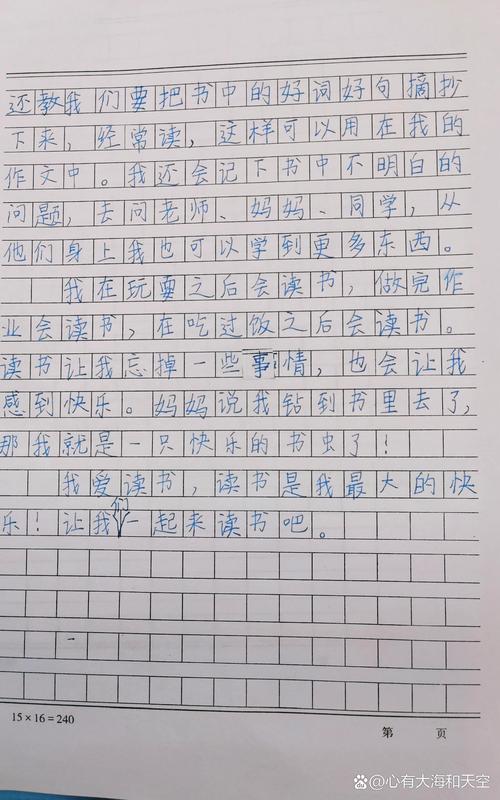 还教我们要把书中的好词好句摘抄
下来，经常读，这样可以用在我的
作文中。我还会记下书中不明白的
问题，去问老师、妈妈、同学，从
他们身上我也可以学到更多东西。
我在玩耍之后会读书，做完作
业会读书，在吃过饭之后会读书。
读书让我忘掉一些事情，也会让我
感到快乐。妈妈说我钻到书里去了，
那我就是一只快乐的书虫了！
我爱读书，读书是我最大的快
乐！让我们一起来读书吧。
15×16=240
第 页
百家号@心有大海和天空